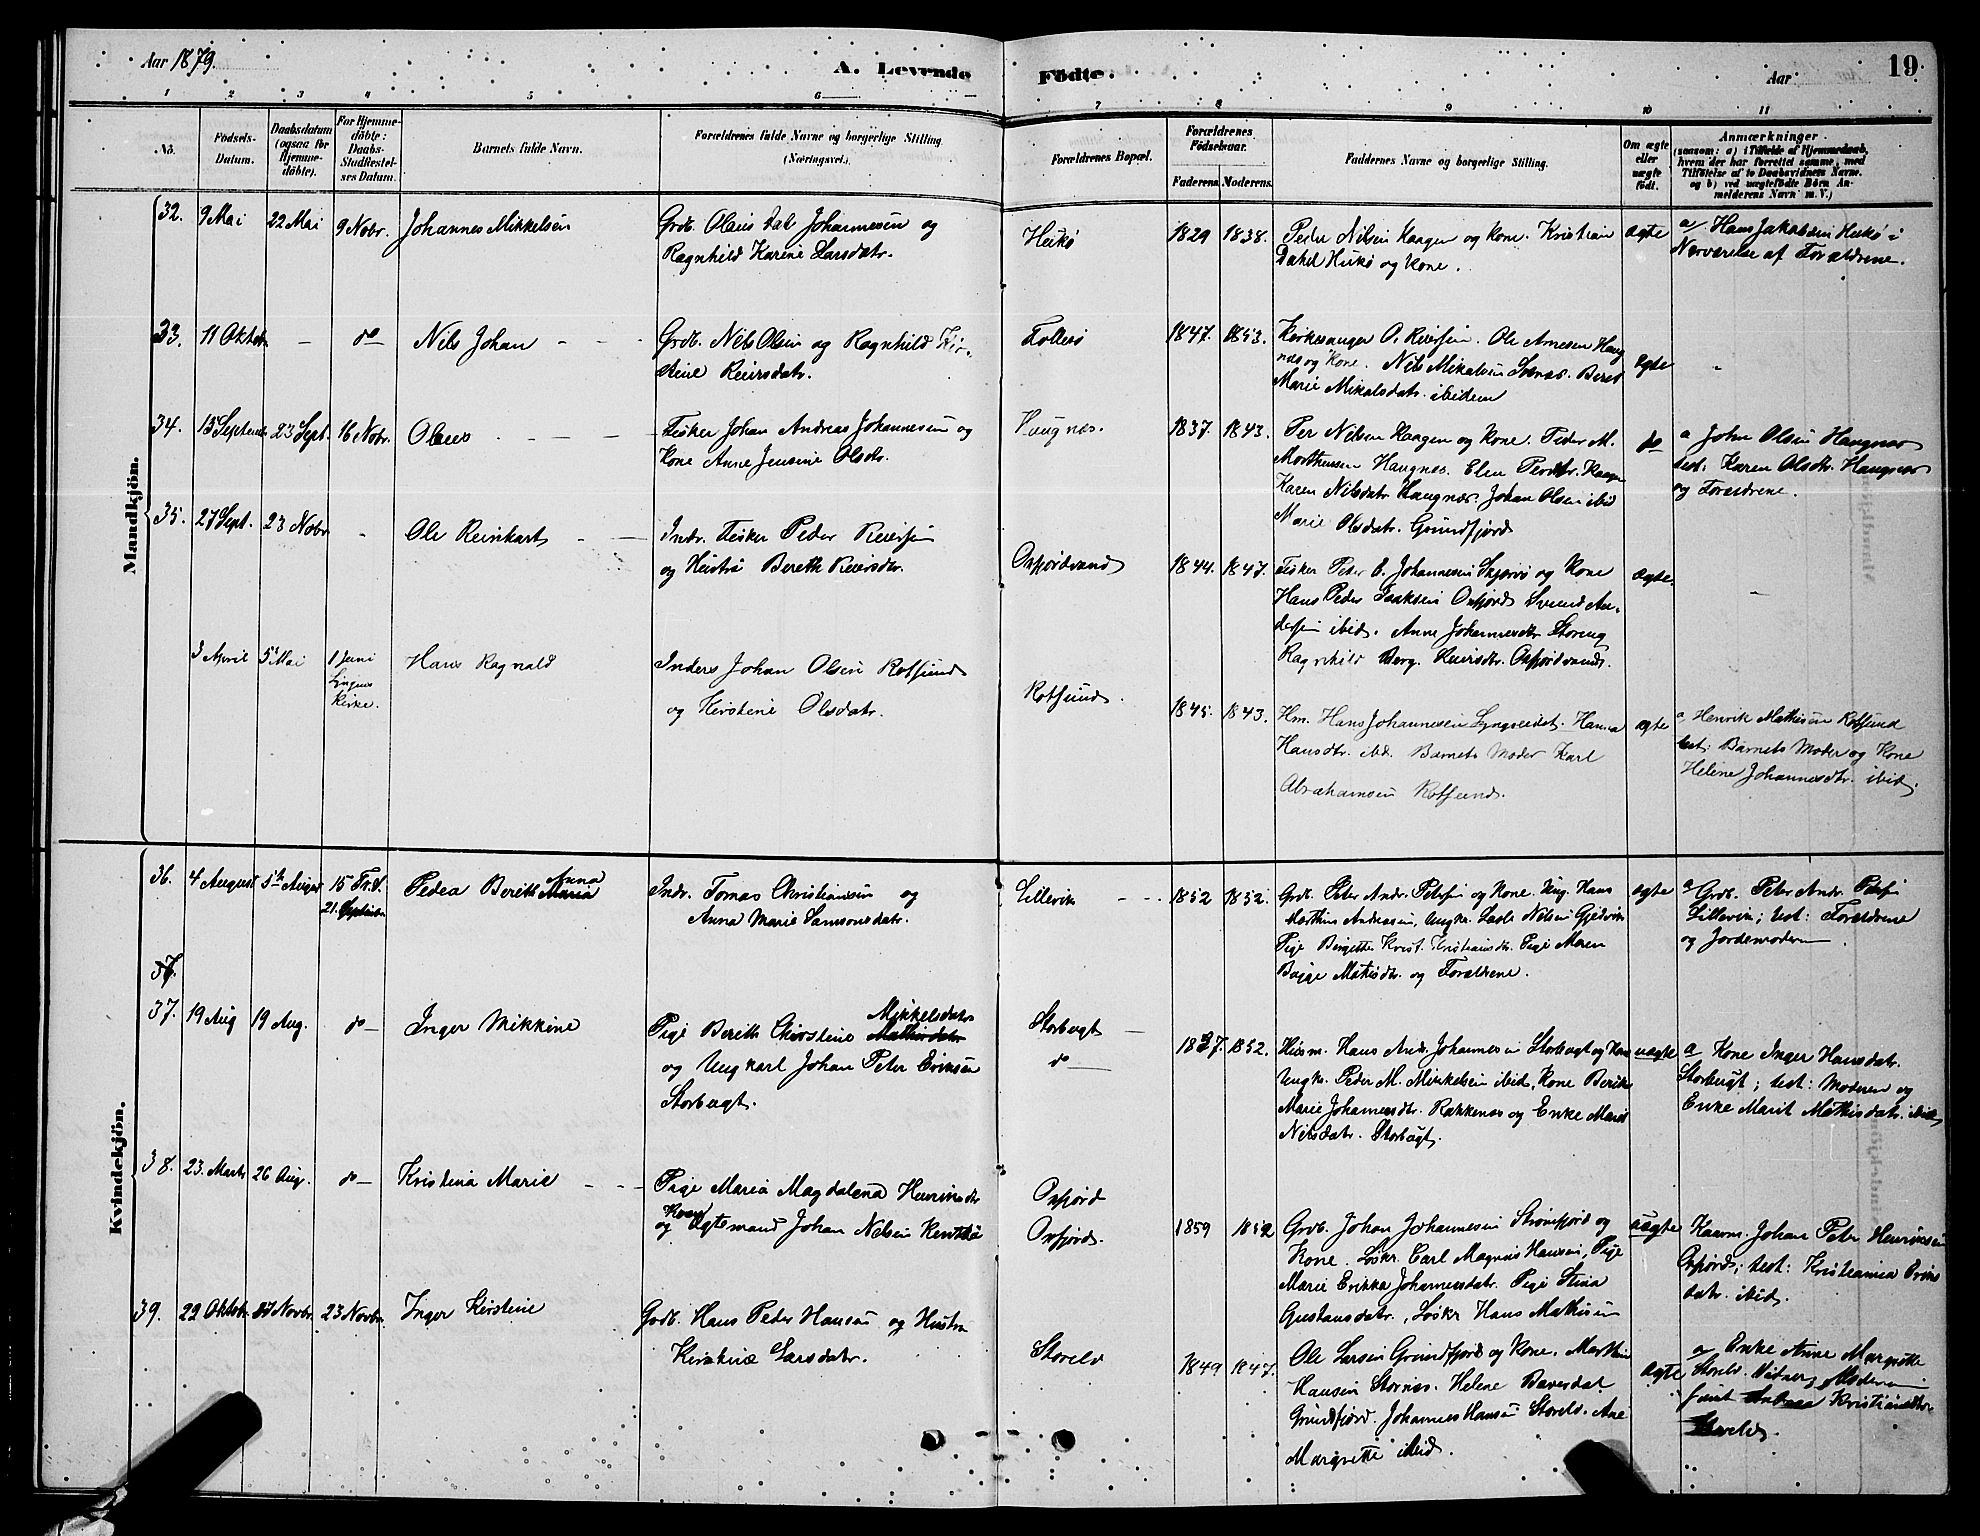 Aar 1879.
A. Levende Födte.
Aar
19
1 2 3 4 5 6 7 8 9 10 11
No.
Födsels-Datum.
Daabsdatum (ogsaa for Hjemmedöbte).
For Hjemmedöbte: Daabs-Stadfæstelses Datum.
Barnets fulde Navn.
Forældrenes fulde Navne og borgerlige Stilling. (Næringsvei.)
Forældrenes Bopæl.
Forældrenes Födselsaar.
Faderens. Moderens.
Faddernes Navne og borgerlige Stilling.
Om ægte eller uægte födt.
Anmærkninger
(saasom: a) i Tilfælde af Hjemmedaab, hvem der har forrettet samme, med Tilföielse af to Daabsvidners Navne, og b) ved uægtefödte Börn Anmelderens Navn m. V.)
Mandkjön.
32. 9 Mai 22 Mai 9 Nobr. Johannes Mikkelsen
Grdb. Olaus Dal Johannesen og
Ragnhild Karine Larsdatr.
Hukø 1829 1838.
Peder Nilsen Kaagen og Kone. Kristian
Dahl Hukø og Kone.
ægte
a/ Hans Jakobsen Hukø i
Nærværelse af Forældrene.
33. 11 Oktobr. — do Nils Johan
Grdb. Nils Olsen og Ragnhild Kir-
stine Reiersdatr.
Follesø 1847. 1853.
Kirkesanger O. Reiersen. Ole Arnesen Haug
næs og Kone. Nils Mikalsen. Beret
Marie Mikalsdatr. ibidem
ægte "
34. 13 Septembr 23 Sept. 16 Nobr. Olaus
Fisker Johan Andreas Johannesen og
Kone Anne Jensine Olsdtr.
Haugnæs. 1837. 1843.
Per Nilsen Kaagen og Kone. Peder M.
Morthensen Haugnæs. Elen Persdtr. Kaagen
Karen Nilsdatr Haugnæs. Johan Olsen ibid
Marie Olsdatr. Grundfjord
do
a John Olsen Haugnæs
test: Karen Olsdtr. Haugnæs
og Forældrene.
35. 27 Sept. 23 Nobr. - Ole Reinhart
Indr. Fisker Peder Reiersen
og Hustru Bereth Reiersdtr.
Oxfjordvand 1844. 1847.
Fisker Peter C. Johannesen Skjervø og Kone
Hans Peder Isaksen Oxfjord Svend An-
dersen ibid. Anne Johannesdtr. Storeng
Ragnhild Berg. Reiersdtr. Oxfjordvand.
ægte. -
3 April 5 Mai 1 Juni Lyngens Kirke. Hans Ragnald
Inders Johan Olsen Rotsund
og Kirstine Olsdatr.
Rotsund. 1845. 1843.
Hm. Hans Johannesen Lyngseidet. Hanna
Hansdtr. ibd. Barnets Moder Karl
Abrahamsen Rotsund.
ægte
a Henrik Mathisen Rotsund
test: Barnets Moder og Kone
Helene Johannesdtr. ibid.
Kvindekjön.
36. 4 August 5te August 15 Tr. S. 21. September Pedea Berith Maria Anna
Indr. Tomas Christiansen og
Anna Marie Samsonsdatr.
Lillevik 1852 1852.
Grdb. Peter Andr. Petersen og Kone. Ung. Hans
Mathias Andreasen, Ungkr. Nilsen Gjedvik
Pige Birgitte Krist. Kristiansdtr. Pige Maren
Bagge Mathisdtr. og Forældrene.
ægte
a Grdb. Peter Andr. Petersen
Lillevik; test: Forældrene
og Jordemoderen.
37.
37. 19 Aug 19 Aug. do Inger Mikkine
Pige Berith Chirstine Mathisdatr Mikkelsdatr
og Ungkarl Johan Peter Eriksen
Storbugt.
Storbugt
do
1837. 1852.
Husm. Hans Andr. Johannesen Storbugt og Kone
Ungkr. Peder M. Mikkelsen ibid, Kone Berith
Marie Johannesdtr. Rakkenæs og Enke Marit
Nilsdatr. Storbugt.
uægte
a Kone Inger Hansdatr.
Storbugt; test: Moderen og
Enke Marit Mathisdatr. ibid
38. 23. Marts 26 Aug. do Kristina Marie
Pige Maria Magdalena Henriksdtr
og Kvæn Ægtemand Johan Nilsen
Oxfjord
Oxfjord.
1859 1852
Grdb. Johan Johannesen Straumfjord og
Kone. Løskr. Carl Magnus Hansen, Pige
Marie Erikka Johannesdatr. Pige Stina
Gustavsdatr., Løskr Hans Mathisen
uægte
Kaarm. Johan Peter Henriksen
Oxfjord; test: Kristianna Eriks
datr. ibid.
39. 22 Oktobr. 27 Novbr. 23 Novbr. Inger Kirstine
Grdb. Hans Peder Hansen og Hustru
Kirstine Larsdatr.
Storeld 1849 1847.
Ole Larsen Grundfjord og Kone. Marthin
Hansen Stornæs. Helene
Grundfjord. Johannes Hansen Storeld. Ane
Margrethe ibid.
ægte
a Enke Anne Margrethe
Storeld. Vidner Moderen
samt Kristiansdtr.
Storeld.